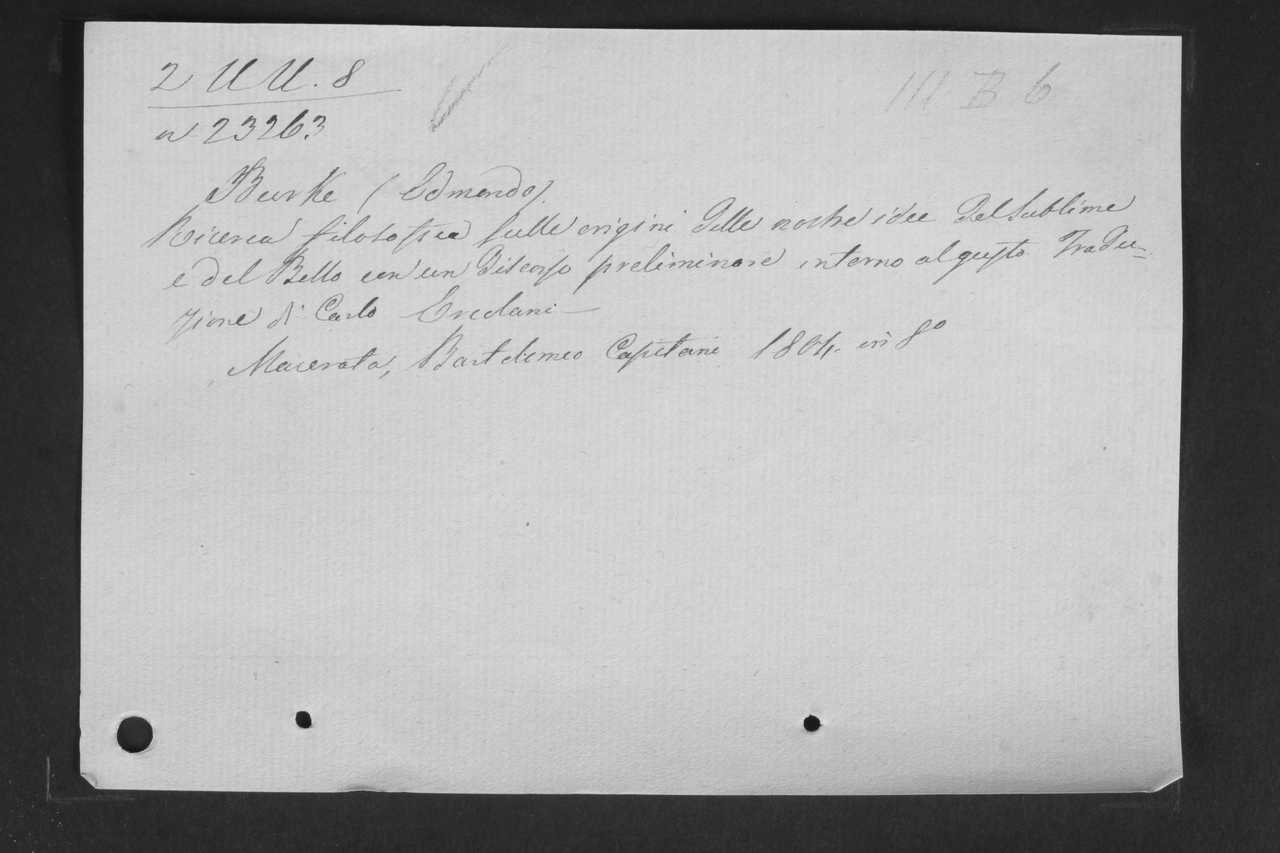 2 U U. 8
III B 6
n 23263
Burke (Edmondo).
Ricerca filosofica sulle origini delle nostre idee del sublime
e del Bello con un discorso preliminare intorno al gusto Tradu-
zione di Carlo Ercolani —
Macerata, Bartolomeo Capitani 1804. in 8º